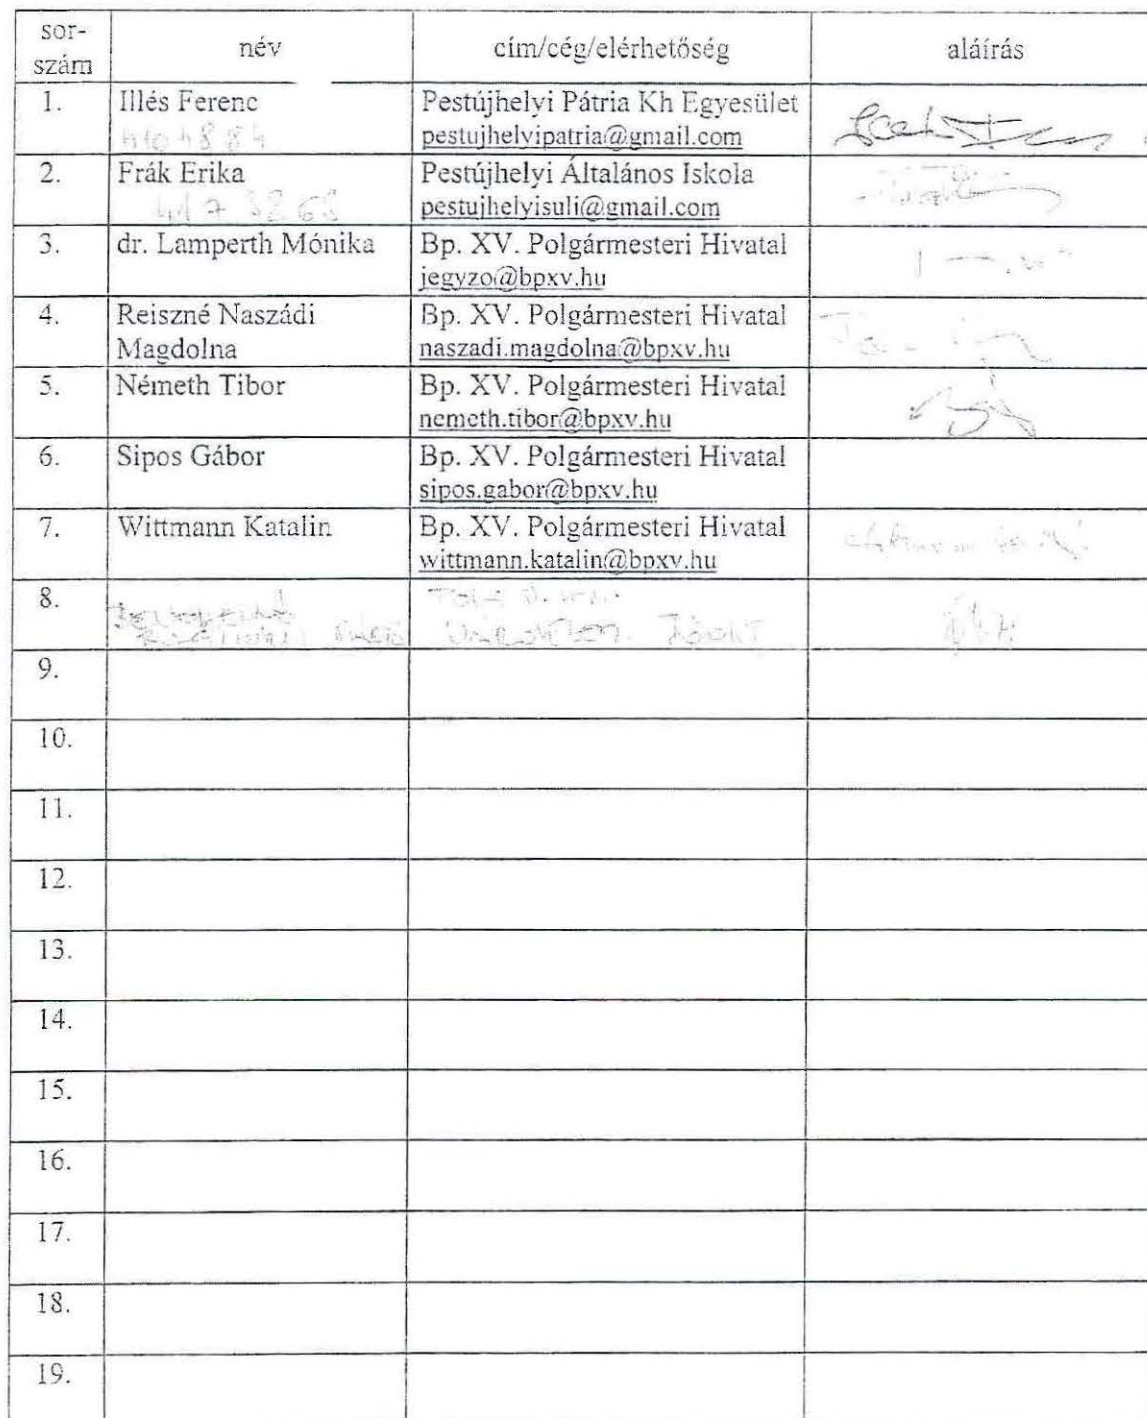 sor-
szám
név
cím/cég/elérhetőség
aláírás
1.
Illés Ferenc
Pestújhelyi Pátria Kh Egyesület
pestujhelyipatria@gmail.com
2.
Frák Erika
Pestújhelyi Általános Iskola
pestujhelyisuli@gmail.com
3.
dr. Lamperth Mónika
Bp. XV. Polgármesteri Hivatal
jegyzo@bpxv.hu
4.
Reiszné Naszádi
Magdolna
Bp. XV. Polgármesteri Hivatal
naszadi.magdolna@bpxv.hu
5.
Németh Tibor
Bp. XV. Polgármesteri Hivatal
nemeth.tibor@bpxv.hu
6.
Sipos Gábor
Bp. XV. Polgármesteri Hivatal
sipos.gabor@bpxv.hu
7.
Wittmann Katalin
Bp. XV. Polgármesteri Hivatal
wittmann.katalin@bpxv.hu
8.
9.
10.
11.
12.
13.
14.
15.
16.
17.
18.
19.